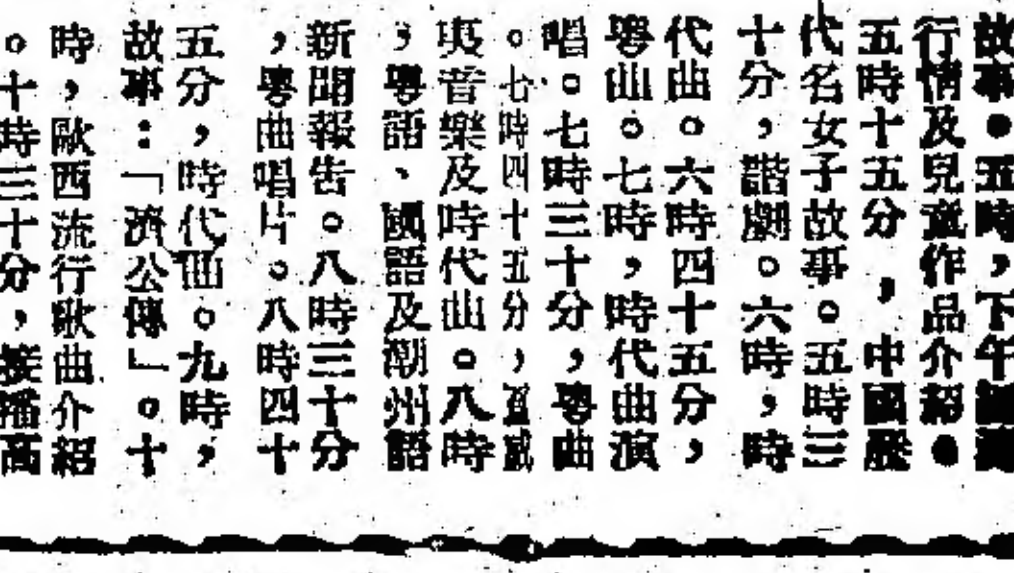 故事。五時，下午
行情及兒童作品介紹。
五時十五分，中國歷
代名女子故事。五時三
十分，諧劇。六時，時
代曲。六時四十五分，
粵曲。七時，時代曲演
唱。七時三十分，粵曲
。七時四十五分，夏威
夷音樂及時代曲。八時
，粵語、國語及潮州語
新聞報告。八時三十分
，粵曲唱片。八時四十
五分，時代曲。九時，
故事：「濟公傳」。十
時，歐西流行歌曲介紹
。十時三十分，接播高